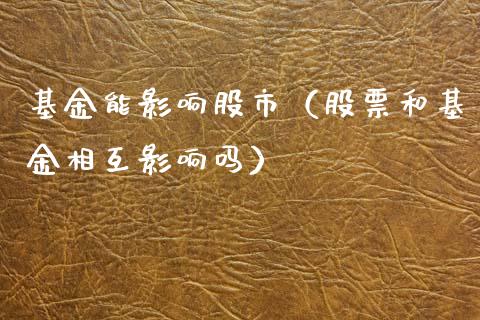 基金能影响股市（股票和基
金相互影响吗）